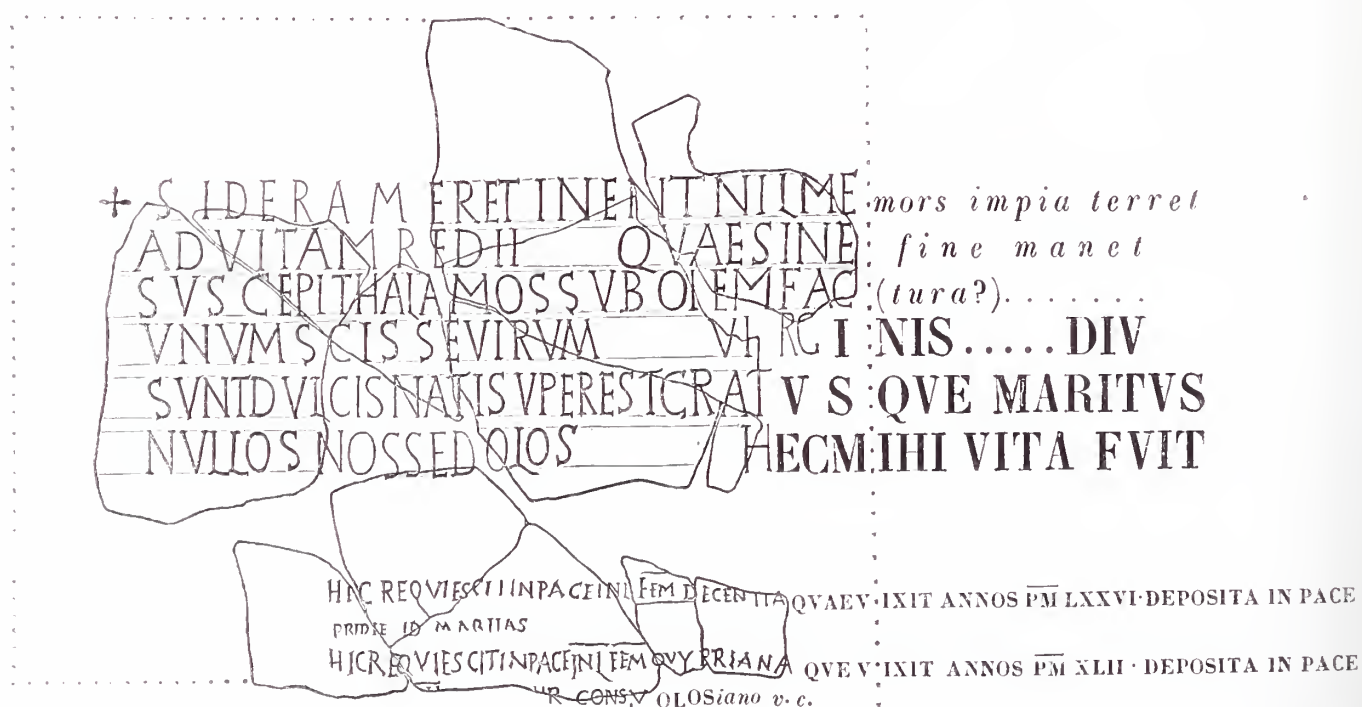 + SIDERA ME RETINENT NIL ME mors impia terret
AD VITAM REDII QVAE SINE fine manet
SVSCEPI THALAMOS SVBOLEM FAC (tura?)........
VNVM SCISSE VIRVM VIRGINIS.....DIV
SVNT DVLCIS NATI SVPEREST GRATVSQVE MARITVS
NVLLOS NOSSE DOLOS HEC MIHI VITA FVIT
HIC REQVIESCIT IN PACE INL FEM DECENTIA QVAE VIXIT ANNOS PM LXXVI·DEPOSITA IN PACE
PRIDIE ID MARTIAS
HIC REQVIESCIT IN PACE INL FEM QVYPRRIANA QVE VIXIT ANNOS PM XLII · DEPOSITA IN PACE
CONSV OLOSiano v. c.